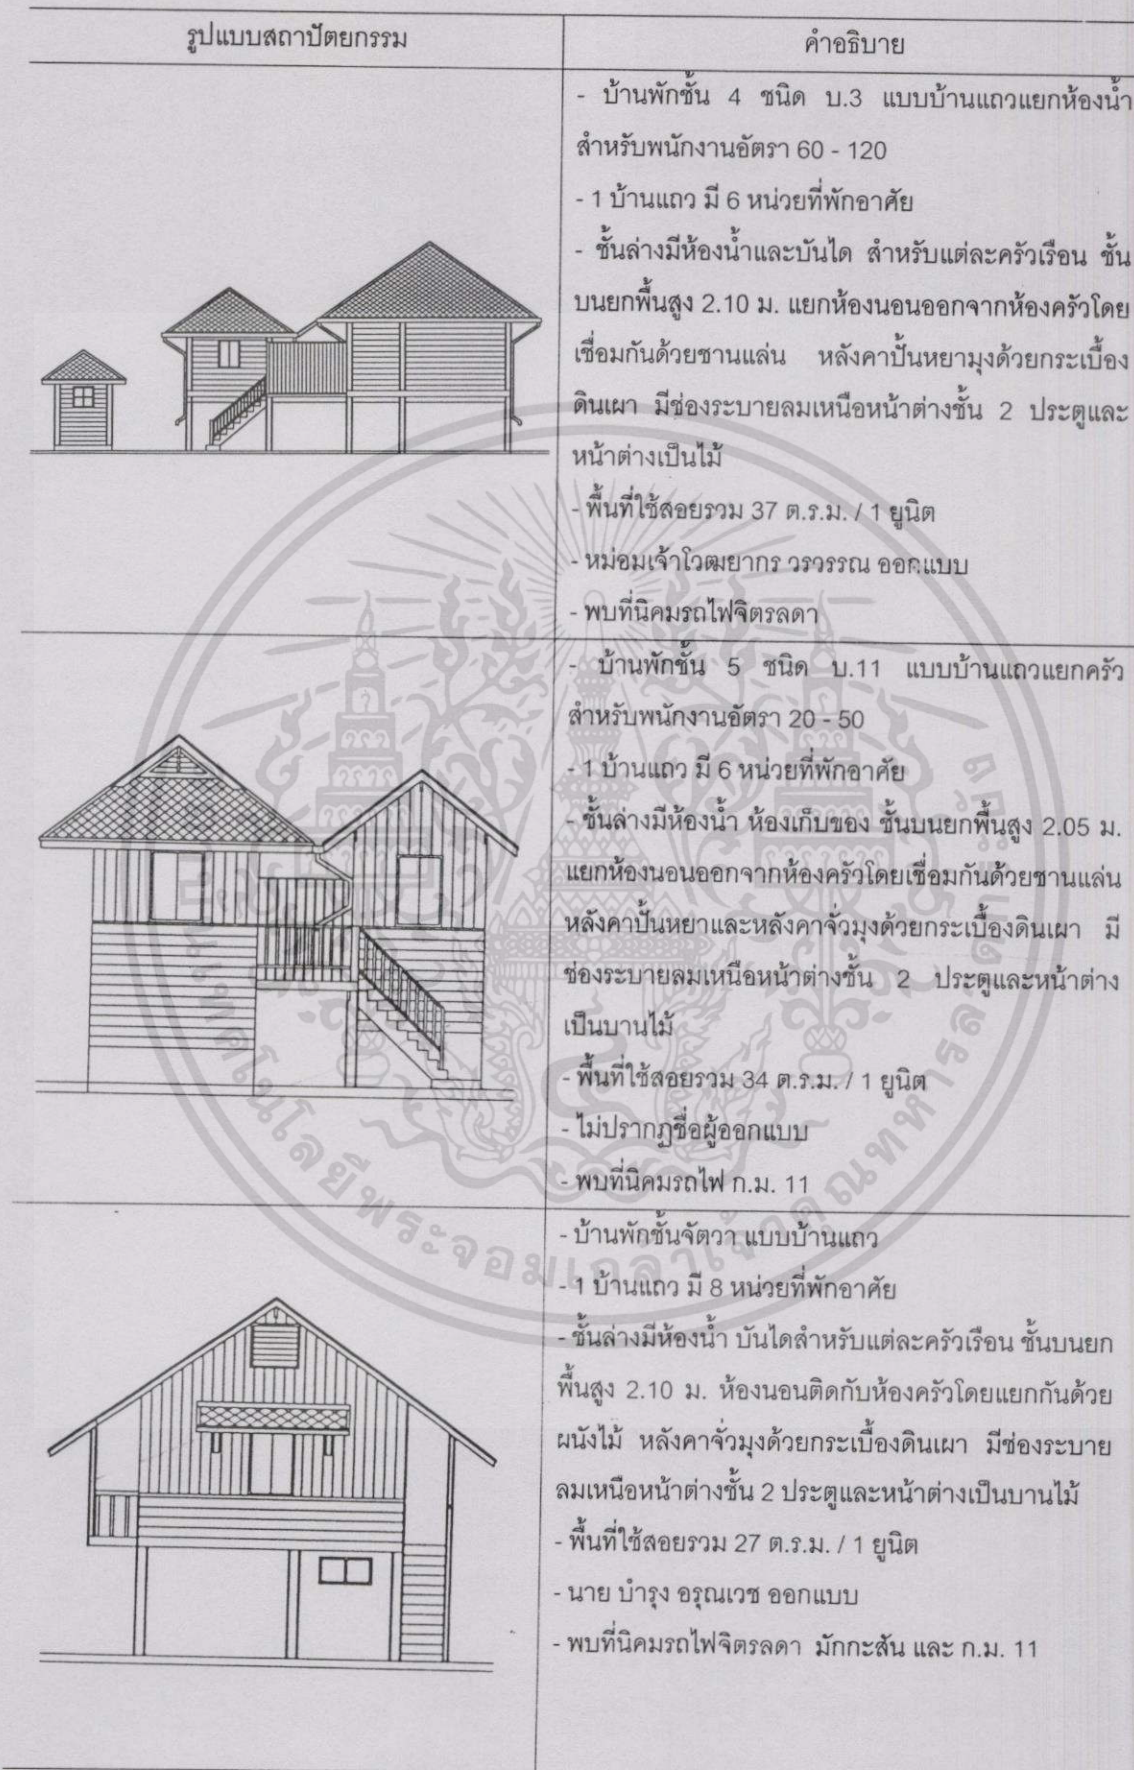 รูปแบบสถาปัตยกรรม
คำอธิบาย
- บ้านพักชั้น 4 ชนิด บ.3 แบบบ้านแถวแยกห้องน้ำ
สำหรับพนักงานอัตรา 60 - 120
- 1 บ้านแถว มี 6 หน่วยที่พักอาศัย
- ชั้นล่างมีห้องน้ำและบันได สำหรับแต่ละครัวเรือน ชั้น
บนยกพื้นสูง 2.10 ม. แยกห้องนอนออกจากห้องครัวโดย
เชื่อมกันด้วยชานแล่น หลังคาปั้นหยามุงด้วยกระเบื้อง
ดินเผา มีช่องระบายลมเหนือหน้าต่างชั้น 2 ประตูและ
หน้าต่างเป็นไม้
- พื้นที่ใช้สอยรวม 37 ต.ร.ม. / 1 ยูนิต
- หม่อมเจ้าโวฒยากร วรวรรณ ออกแบบ
- พบที่นิคมรถไฟจิตรลดา
- บ้านพักชั้น 5 ชนิด บ.11 แบบบ้านแถวแยกครัว
สำหรับพนักงานอัตรา 20 - 50
- 1 บ้านแถว มี 6 หน่วยที่พักอาศัย
- ชั้นล่างมีห้องน้ำ ห้องเก็บของ ชั้นบนยกพื้นสูง 2.05 ม.
แยกห้องนอนออกจากห้องครัวโดยเชื่อมกันด้วยชานแล่น
หลังคาปั้นหยาและหลังคาจั่วมุงด้วยกระเบื้องดินเผา มี
ช่องระบายลมเหนือหน้าต่างชั้น 2 ประตูและหน้าต่าง
เป็นบานไม้
- พื้นที่ใช้สอยรวม 34 ต.ร.ม. / 1 ยูนิต
- ไม่ปรากฏชื่อผู้ออกแบบ
- พบที่นิคมรถไฟ ก.ม. 11
- บ้านพักชั้นจัตวา แบบบ้านแถว
- 1 บ้านแถว มี 8 หน่วยที่พักอาศัย
- ชั้นล่างมีห้องน้ำ บันไดสำหรับแต่ละครัวเรือน ชั้นบนยก
พื้นสูง 2.10 ม. ห้องนอนติดกับห้องครัวโดยแยกกันด้วย
ผนังไม้ หลังคาจั่วมุงด้วยกระเบื้องดินเผา มีช่องระบาย
ลมเหนือหน้าต่างชั้น 2 ประตูและหน้าต่างเป็นบานไม้
- พื้นที่ใช้สอยรวม 27 ต.ร.ม. / 1 ยูนิต
- นาย บำรุง อรุณเวช ออกแบบ
- พบที่นิคมรถไฟจิตรลดา มักกะสัน และ ก.ม. 11